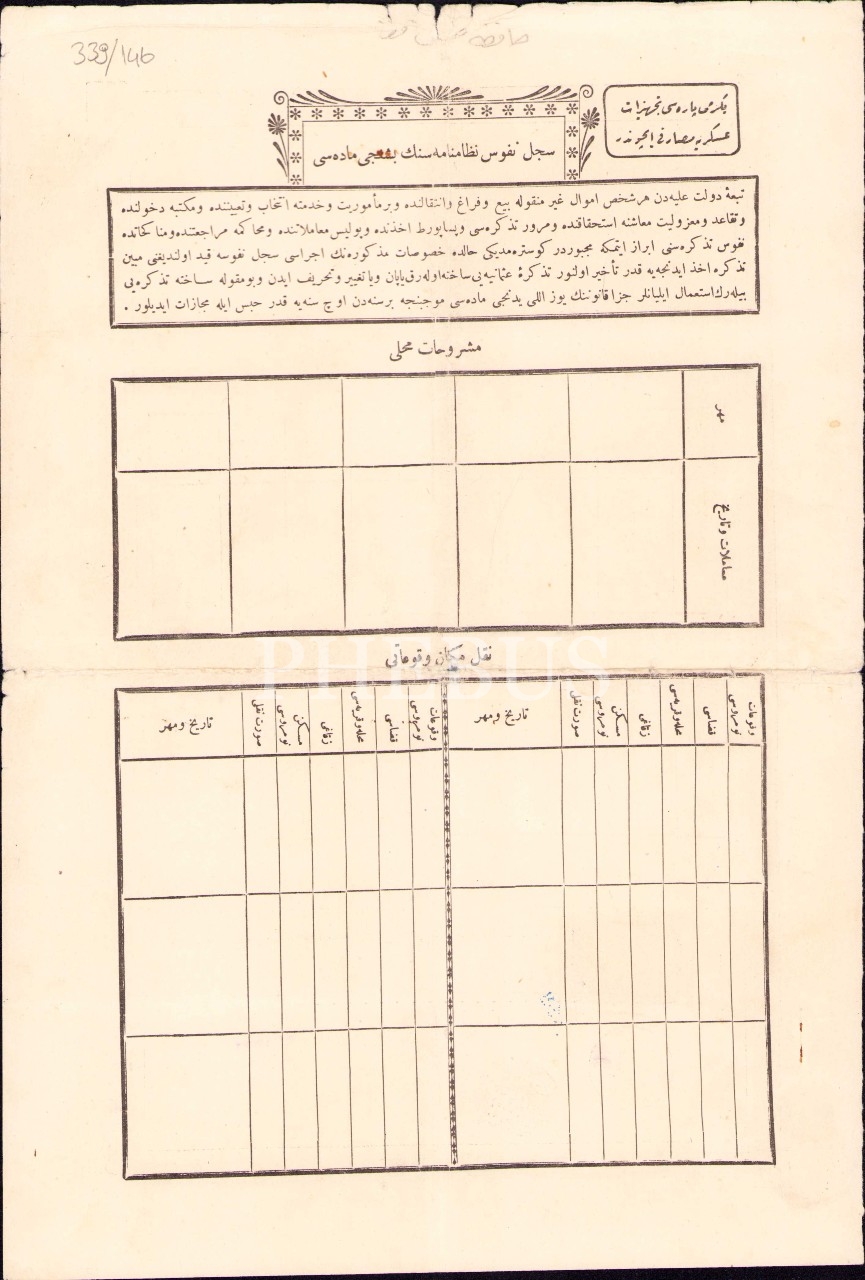 339/146
یكرمی پاره سی تجهیزات
عسكریه مصارفی ایچوندر
سجل نفوس نظامنامه سنك جی ماده سی
تبعهٔ دولت علیه دن هر شخص اموال غیر منقوله بیع و فراغ وانتقالنده وبر مأموریت وخدمته انتخاب وتعییننده ومكتبه دخولنده
وتقاعد ومعزولیت معاشنه استحقاقنده ومرور تذكره سی وپساپورط اخذنده وپولیس معاملاتنده ومحاكمه مراجعتنده ومناكحاتده
نفوس تذكره سنی ابراز ایتمكه مجبوردر كوستره مدیكی حالده خصوصات مذكوره نك اجراسی سجل نفوسه قید اولندیغنی مبین
تذكره اخذ ایدنجه یه قدر تأخیر اولنور تذكرهٔ عثمانیه یی ساخته اوله رق یاپان ویا تغییر وتحریف ایدن وبو مقوله ساخته تذكره یی
بیله رك استعمال ایلیانلر جزا قانوننك یوز اللی یدنجی ماده سی موجبنجه بر سنه دن اوچ سنه یه قدر حبس ایله مجازات ایدیلور .
مشروحات محلی
مهر
معاملات وتاریخ
نقل مكان وقوعاتی
PHEBUS
وقوعات نومروسی
قضاسی
محله وقریه سی
زقاغی
مسكن نومروسی
صورت نقلی
تاریخ ومهر
وقوعات نومروسی
قضاسی
محله وقریه سی
زقاغی
مسكن نومروسی
صورت نقلی
تاریخ ومهر